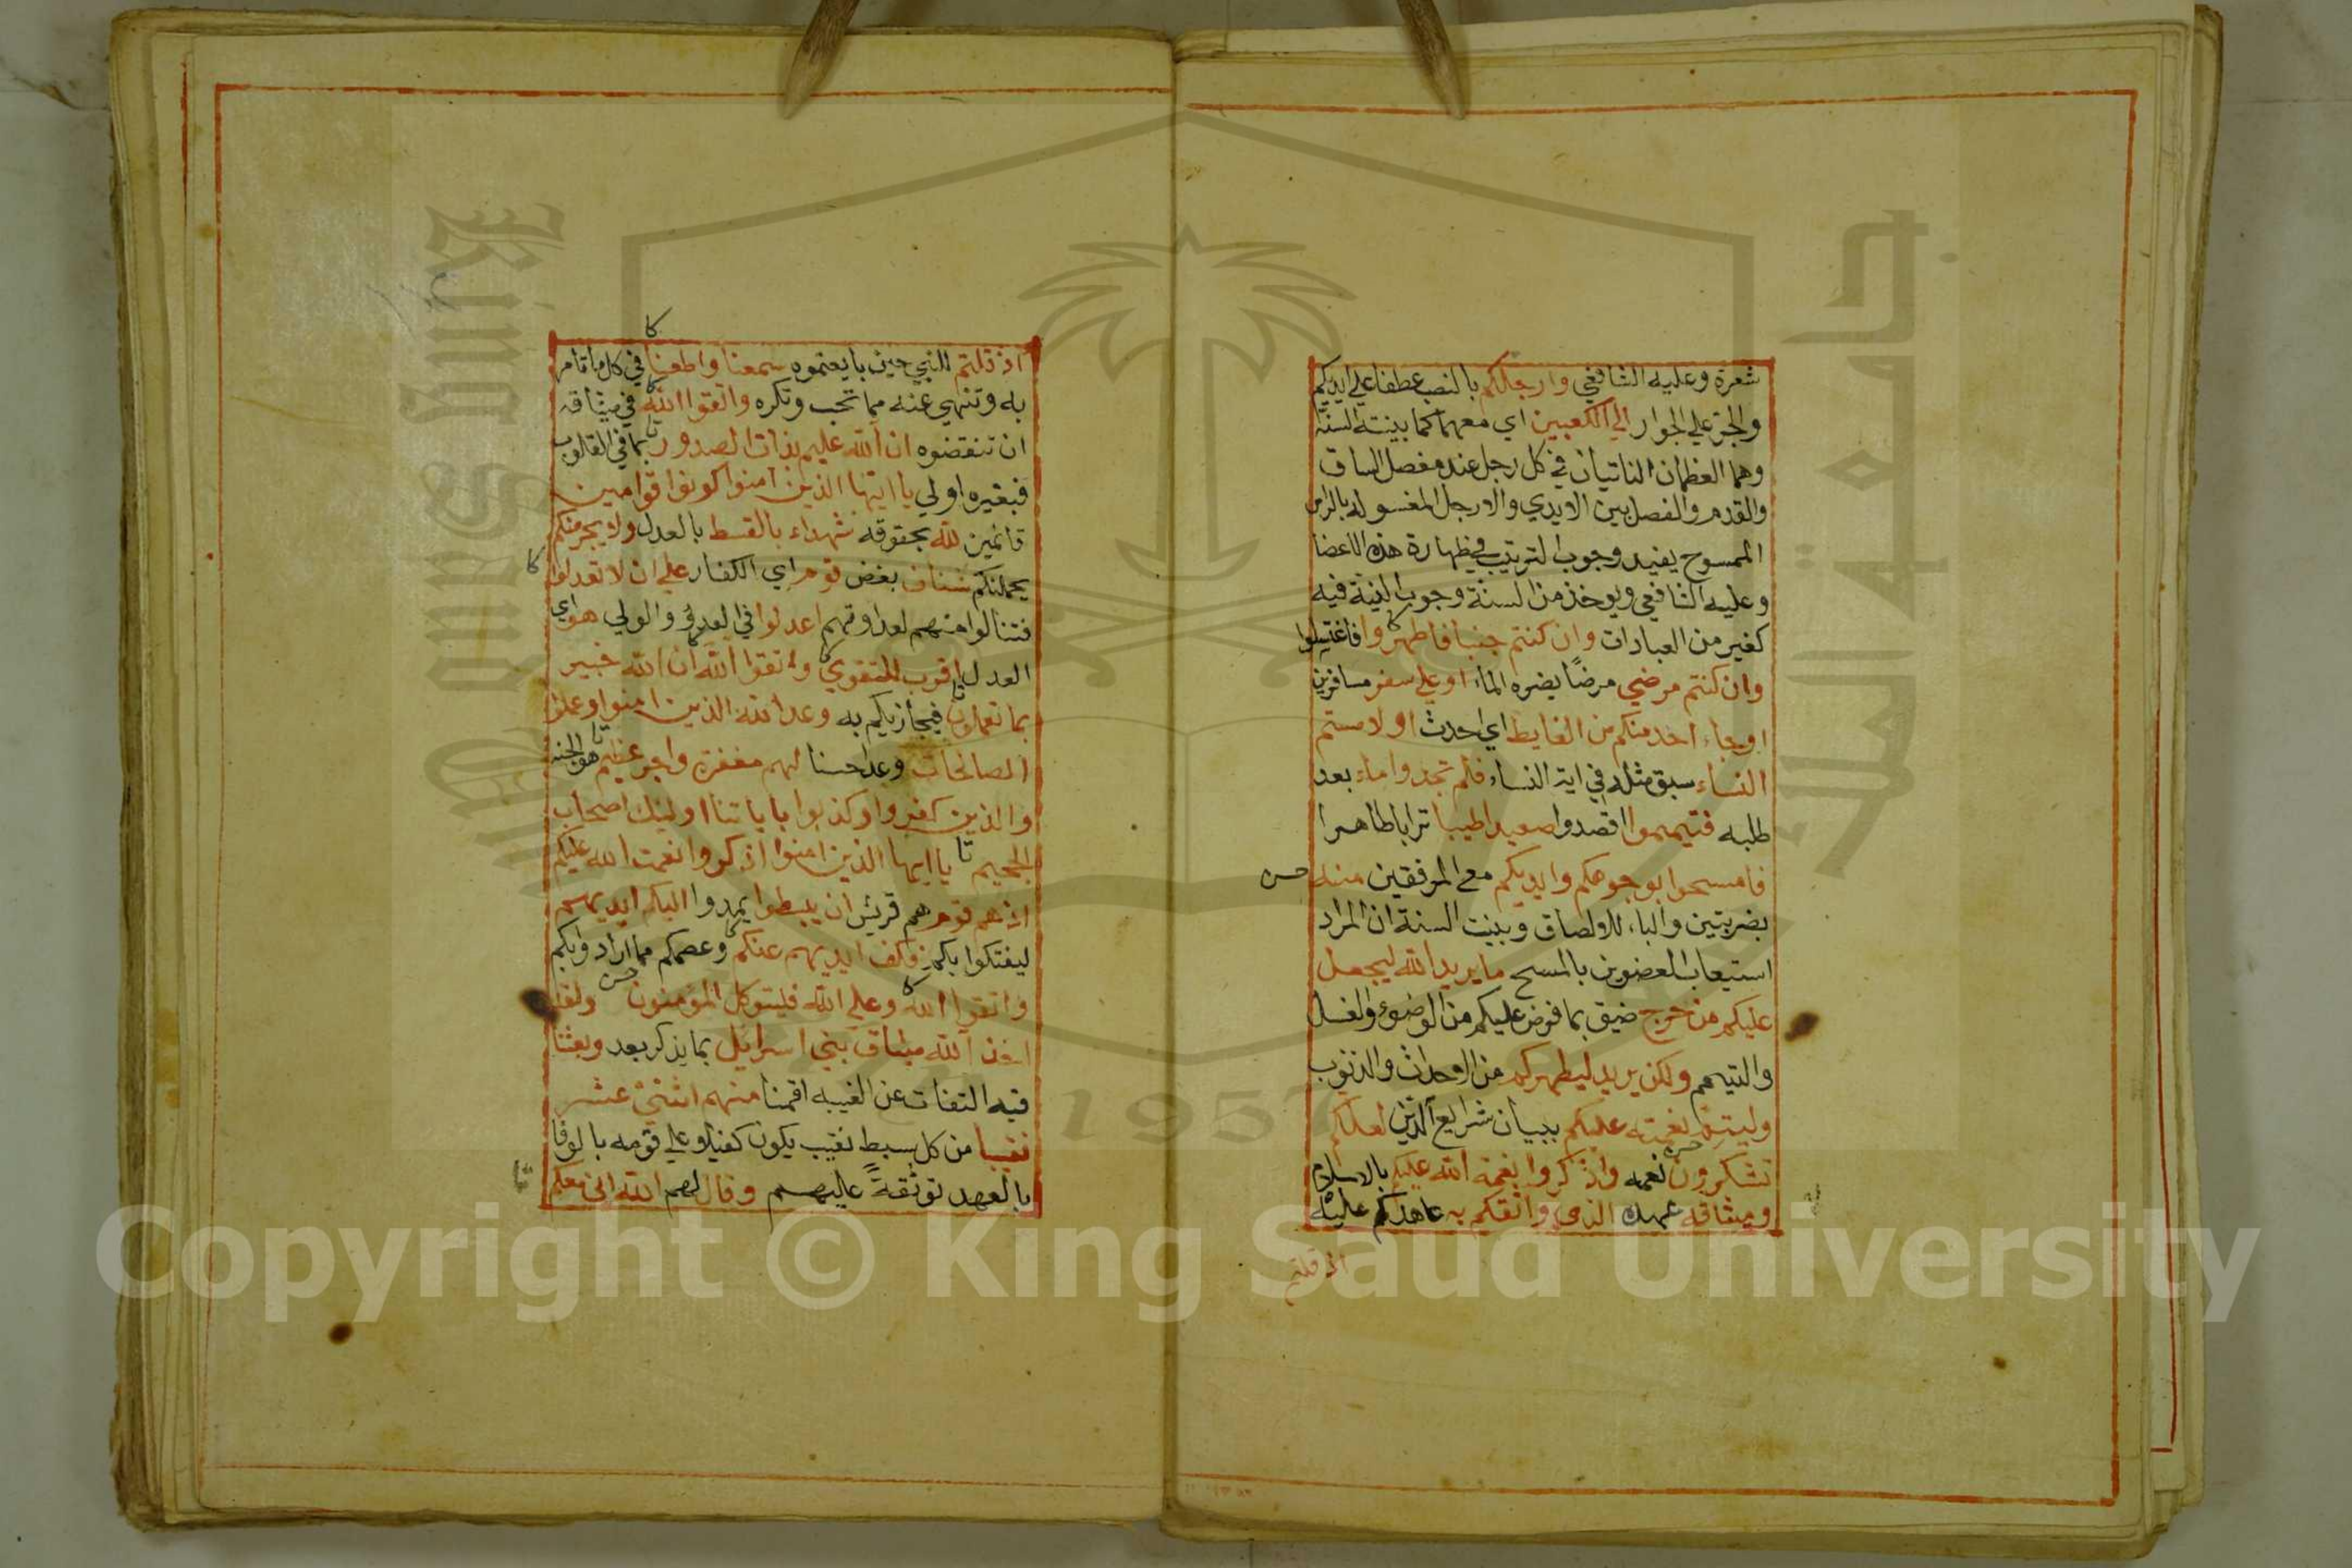 شعرة وعليه الشافعي وارجلكم بالنصب عطفا علي ايديكم
والجر علي الجوار الي الكعبين اي معهما كما بينته السنة
وهما العظمان الناتيان في كل رجل عند مفصل الساق
والقدم والفصل بين الايدي والارجل المغسوله بالراس
الممسوح يفيد وجوب الترتيب في طهارة هذه الاعضا
وعليه الشافعي ويوخذ من السنة وجوب النية فيه
كغيره من العبادات وان كنتم جنبا فاطهروا فاغتسلوا
وان كنتم مرضي مرضًا يضره الماء او علي سفر مسافرين
او جاء احد منكم من الغايط اي احدث او لامستم
النساء سبق مثله في اية النساء فلم تجدوا ماء بعد
طلبه فتيمموا اقصدوا صعيدا طيبا ترابا طاهرا
فامسحوا بوجوهكم وايديكم مع المرفقين منه
بضربتين والباء للالصاق وبينت السنة ان المراد
استيعاب العضوين بالمسح ما يريد الله ليجعل
عليكم من حرج ضيق بما فرض عليكم من الوضوء والغسل
والتيمم ولكن يريد ليطهركم من الاحداث والذنوب
وليتم نعمته عليكم ببيان شرايع الدين لعلكم
تشكرون نعمه واذكروا نعمة الله عليكم بالاسلام
وميثاقه عهده الذي واثقكم به عاهدكم عليه
اذ قلتم
اذ قلتم للنبي حين بايعتموه سمعنا واطعنا في كل ما تامر
به وتنهي عنه مما تحب وتكره واتقوا الله في ميثاقه
ان تنقضوه ان الله عليم بذات الصدور بما في القلوب
فبغيره اولي يا ايتها الذين امنوا كونوا قوامين
قائمين لله بحقوقه شهداء بالقسط بالعدل ولا يجرمنكم
يحملنكم شنان بغض قوم اي الكفار علي ان لا تعدلوا
فتنالوا منهم لعداوتهم اعدلوا في العدو والولي هو اي
العدل اقرب للتقوي واتقوا الله ان الله خبير
بما تعملون فيجازيكم به وعد الله الذين امنوا وعملوا
الصالحات وعدا حسنا لهم مغفرة واجر عظيم هو الجنه
والذين كفروا وكذبوا باياتنا اوليك اصحاب
الجحيم يا ايها الذين امنوا اذكروا نعمت الله عليكم
اذ هم قوم هم قريش ان يبسطوا يمدوا اليكم ايديهم
ليفتكوا بكم فكف ايديهم عنكم وعصمكم مما ارادوا بكم
واتقوا الله وعلي الله فليتوكل المؤمنون ولقد
اخذ الله ميثاق بني اسرايل بما يذكر بعد وبعثنا
فيه التفات عن الغيبه اقمنا منهم اثني عشر
نقيبا من كل سبط نقيب يكون كفيلا علي قومه بالوفا
بالعهد توثقةً عليهم وقال لهم الله اني معكم
جامعة الملك سعود
King Saud University
1957
Copyright © King Saud University